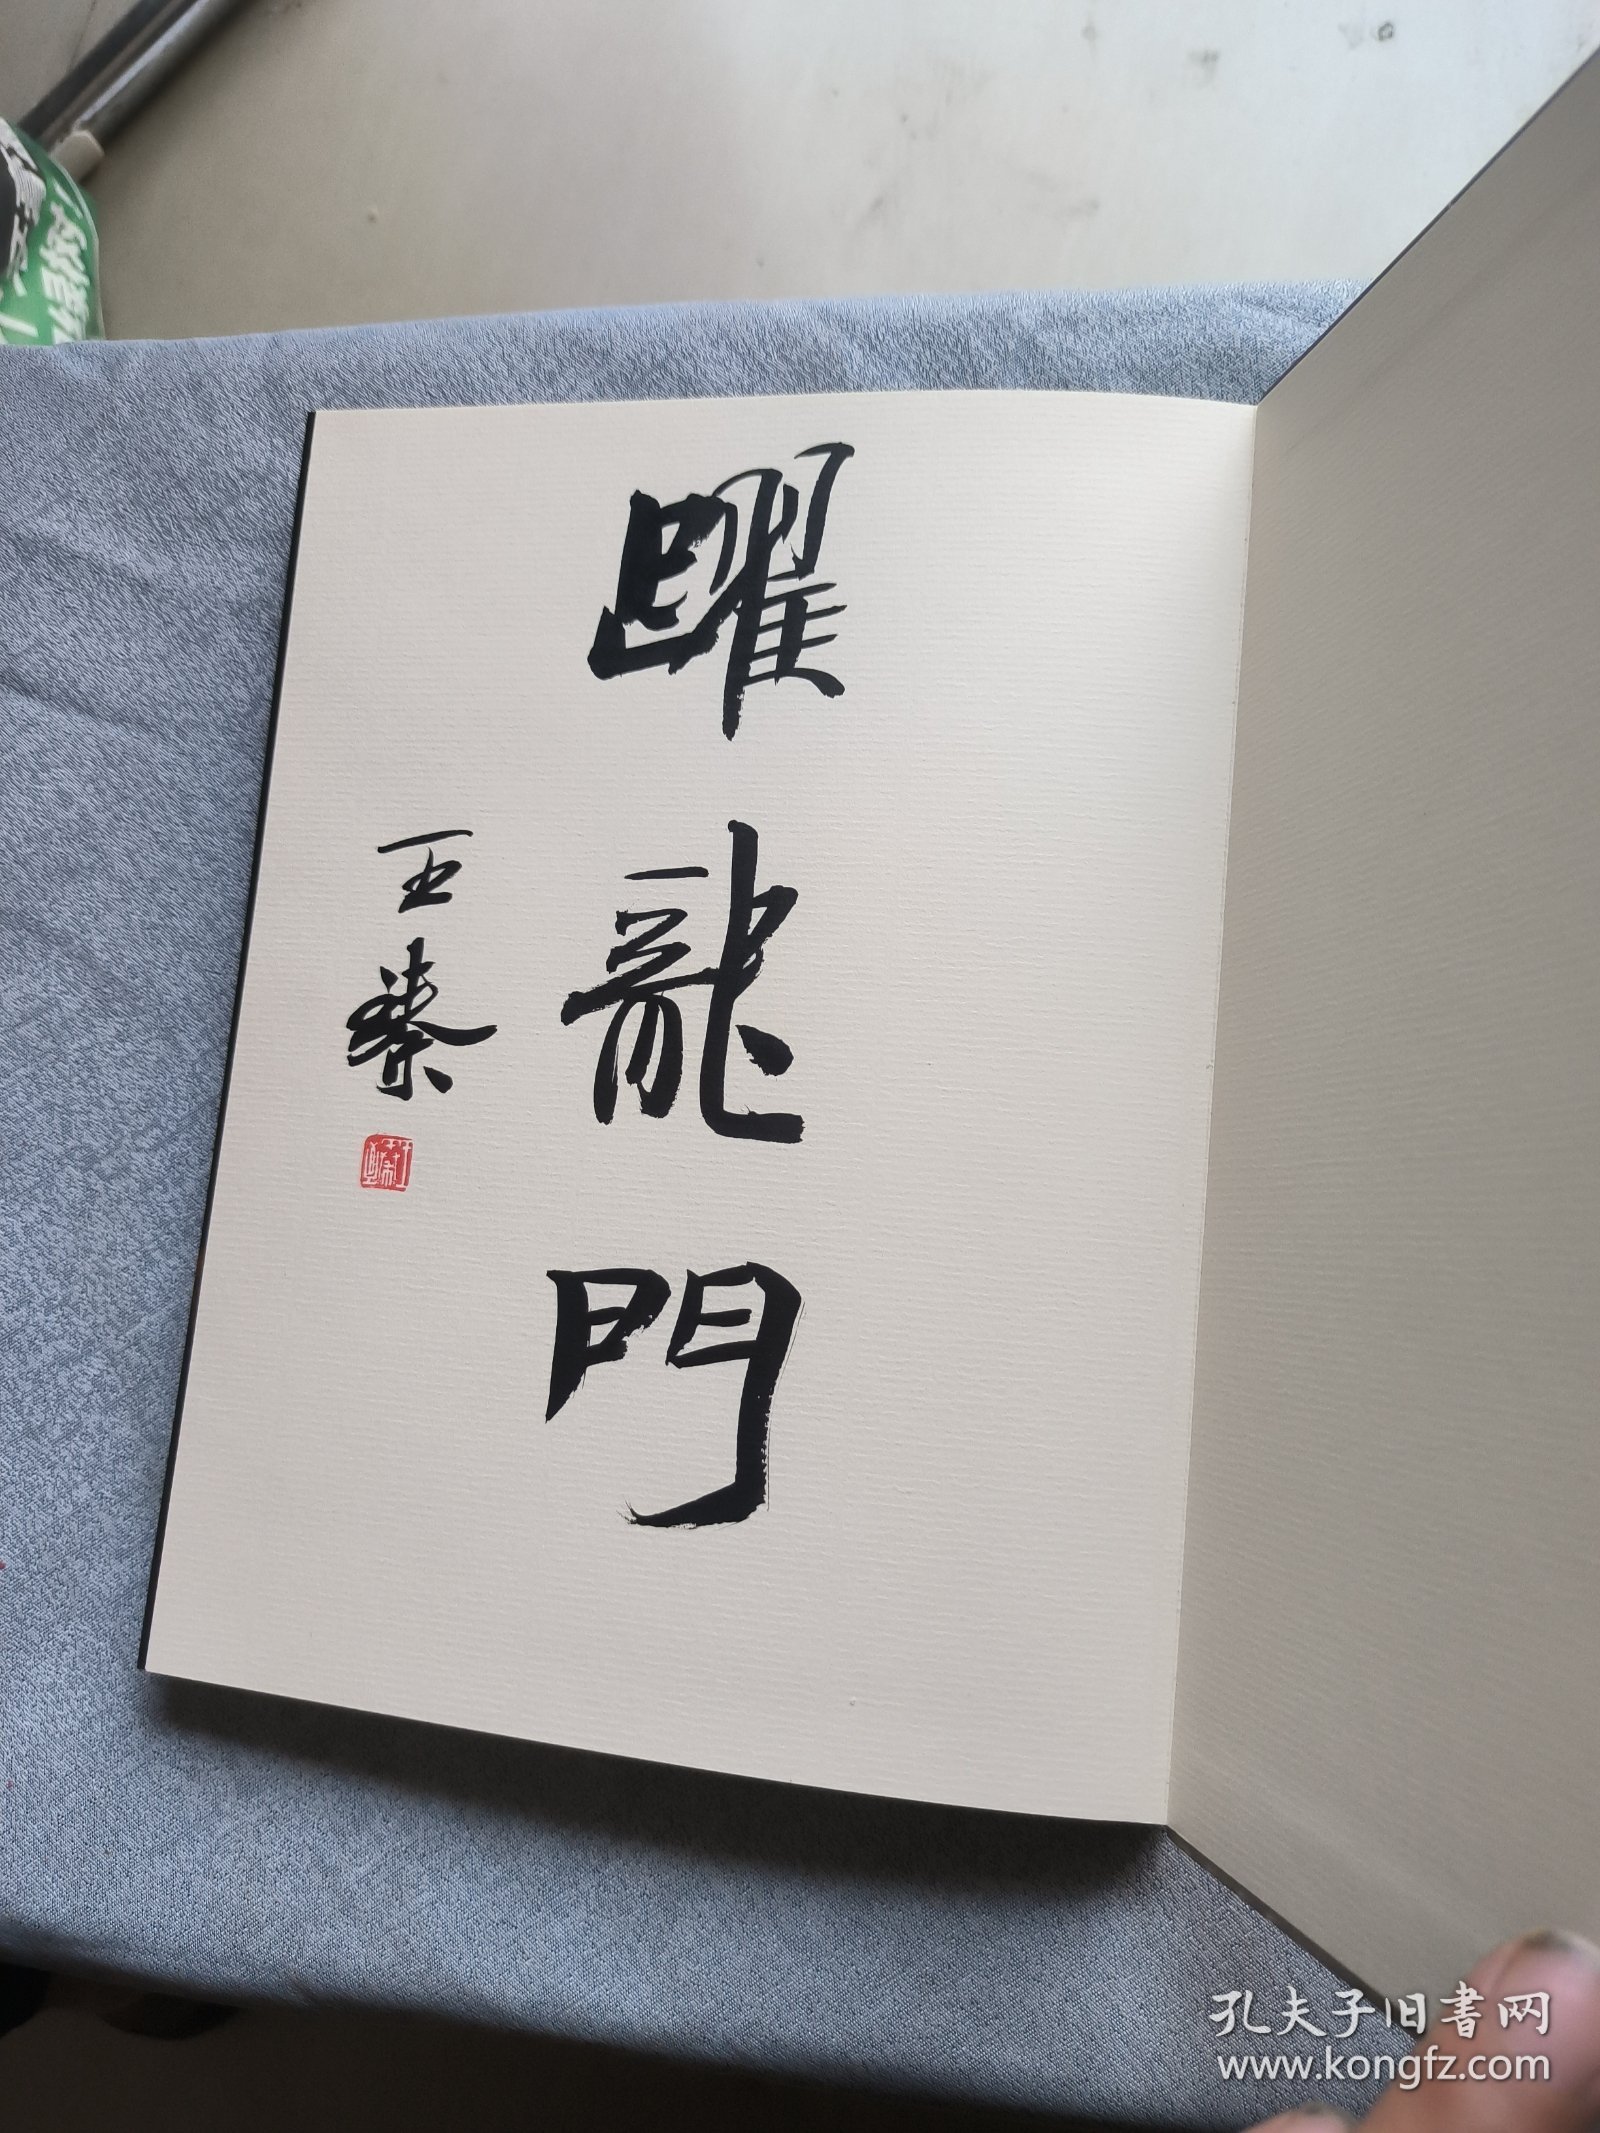 躍龍門
王蓁
孔夫子旧書网
www.kongfz.com